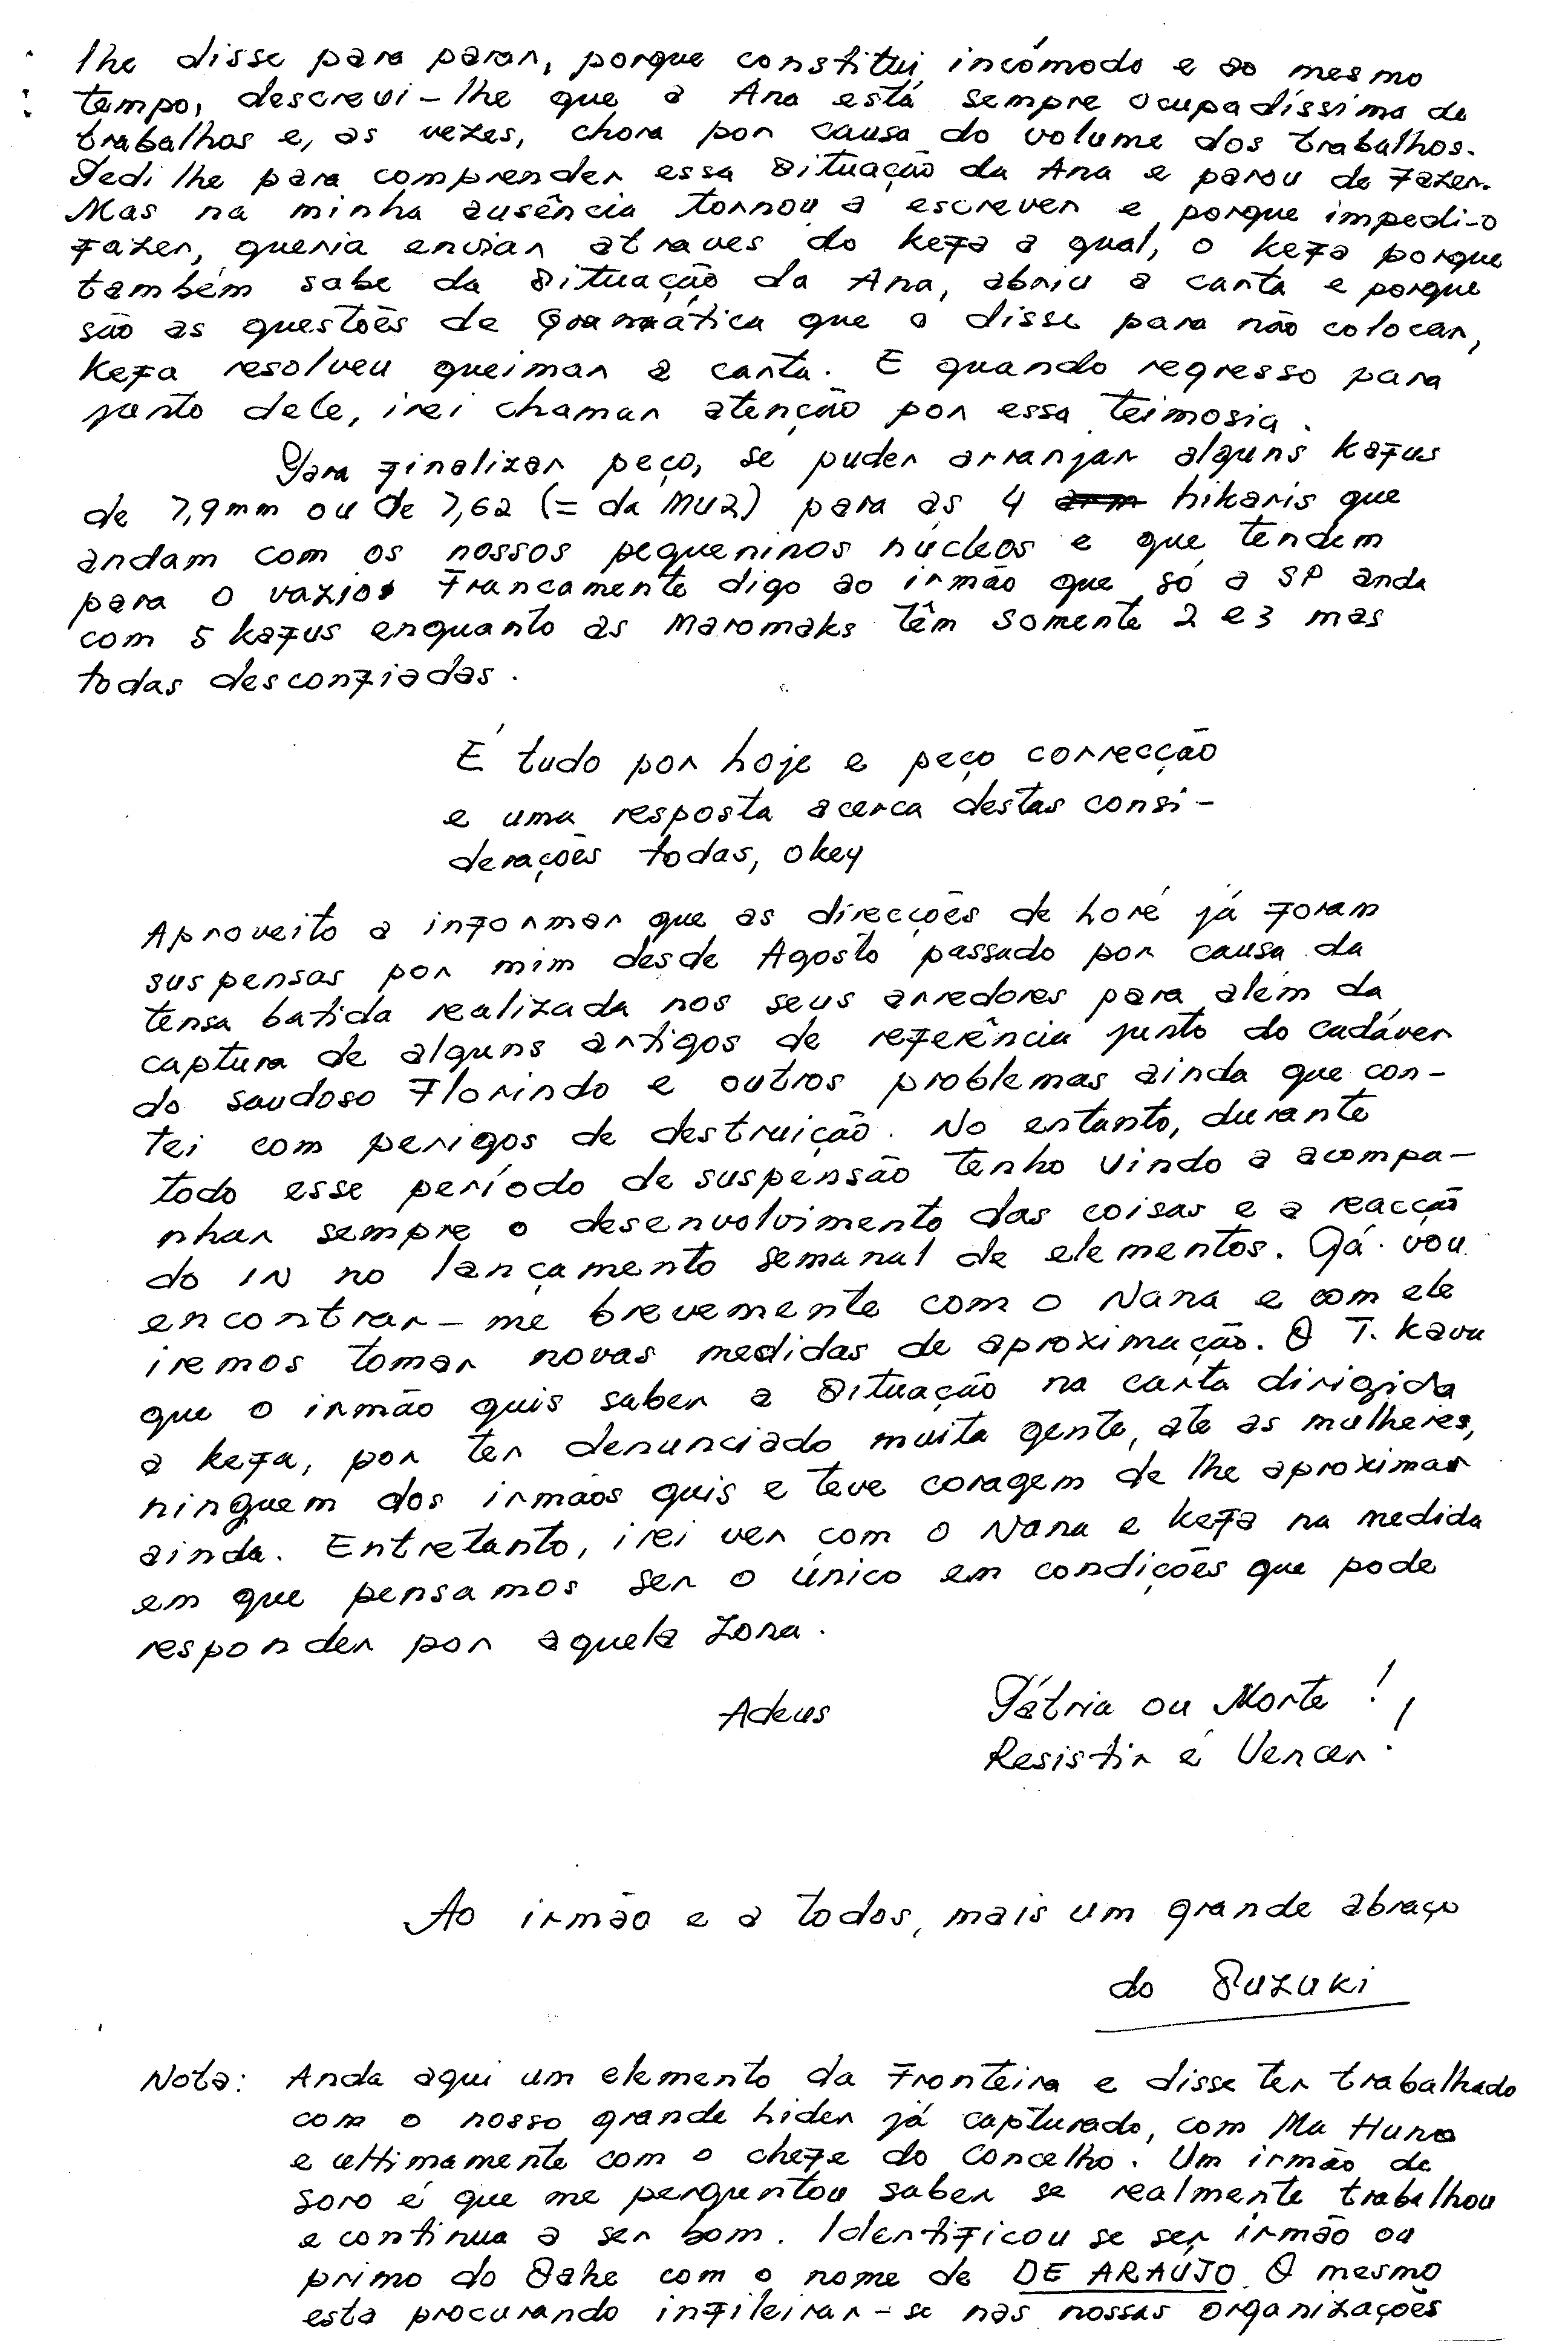 lhe disse para parar, porque constitui incómodo e ao mesmo
tempo, descrevi-lhe que a Ana está sempre ocupadíssima de
trabalhos e, as vezes, chora por causa do volume dos trabalhos.
Pedi lhe para comprender essa situação da Ana e parou de fazer.
Mas na minha ausência tornou a escrever e porque impedi-o
fazer, queria enviar atraves do kefa a qual, o kefa porque
também sabe da situação da Ana, abriu a carta e porque
são as questões de gramática que o disse para não colocar,
kefa resolveu queimar a carta. E quando regresso para
junto dele, irei chamar atenção por essa teimosia.
Para finalizar peço, se puder arranjar alguns kafus
de 7,9mm ou de 7,62 (= da MU2) para as 4 arm hikaris que
andam com os nossos pequeninos núcleos e que tendem
para o vazio. Francamente digo ao irmão que só a SP anda
com 5 kafus enquanto as Maromaks têm somente 2 e 3 mas
todas desconfiadas.
É tudo por hoje e peço correcção
e uma resposta acerca destas consi-
derações todas, okey
Aproveito a informar que as direcções de Loré já foram
suspensas por mim desde Agosto passado por causa da
tensa batida realizada nos seus arredores para além da
captura de alguns artigos de referência junto do cadáver
do saudoso Florindo e outros problemas ainda que con-
tei com perigos de destruição. No entanto, durante
todo esse período de suspensão tenho vindo a acompa-
nhar sempre o desenvolvimento das coisas e a reacção
do IN no lançamento semanal de elementos. Já vou
encontrar-me brevemente com o Nana e com ele
iremos tomar novas medidas de aproximação. O T. Kavu
que o irmão quis saber a situação na carta dirigida
a kefa, por ter denunciado muita gente, ate as mulheres,
ninguem dos irmãos quis e teve coragem de lhe aproximar
ainda. Entretanto, irei ver com o Nana e kefa na medida
em que pensamos ser o único em condições que pode
responder por aquela zona.
Adeus Pátria ou Morte!
Resistir é Vencer!
Ao irmão e a todos, mais um grande abraço
do Suzuki
Nota: Anda aqui um elemento da Fronteira e disse ter trabalhado
com o nosso grande Lider já capturado, com Ma Huno
e ultimamente com o chefe do Concelho. Um irmão de
Soro é que me perguntou saber se realmente trabalhou
e continua a ser bom. Identificou se ser irmão ou
primo do Sahe com o nome de DE ARAÚJO. O mesmo
esta procurando infileirar-se nas nossas organizações